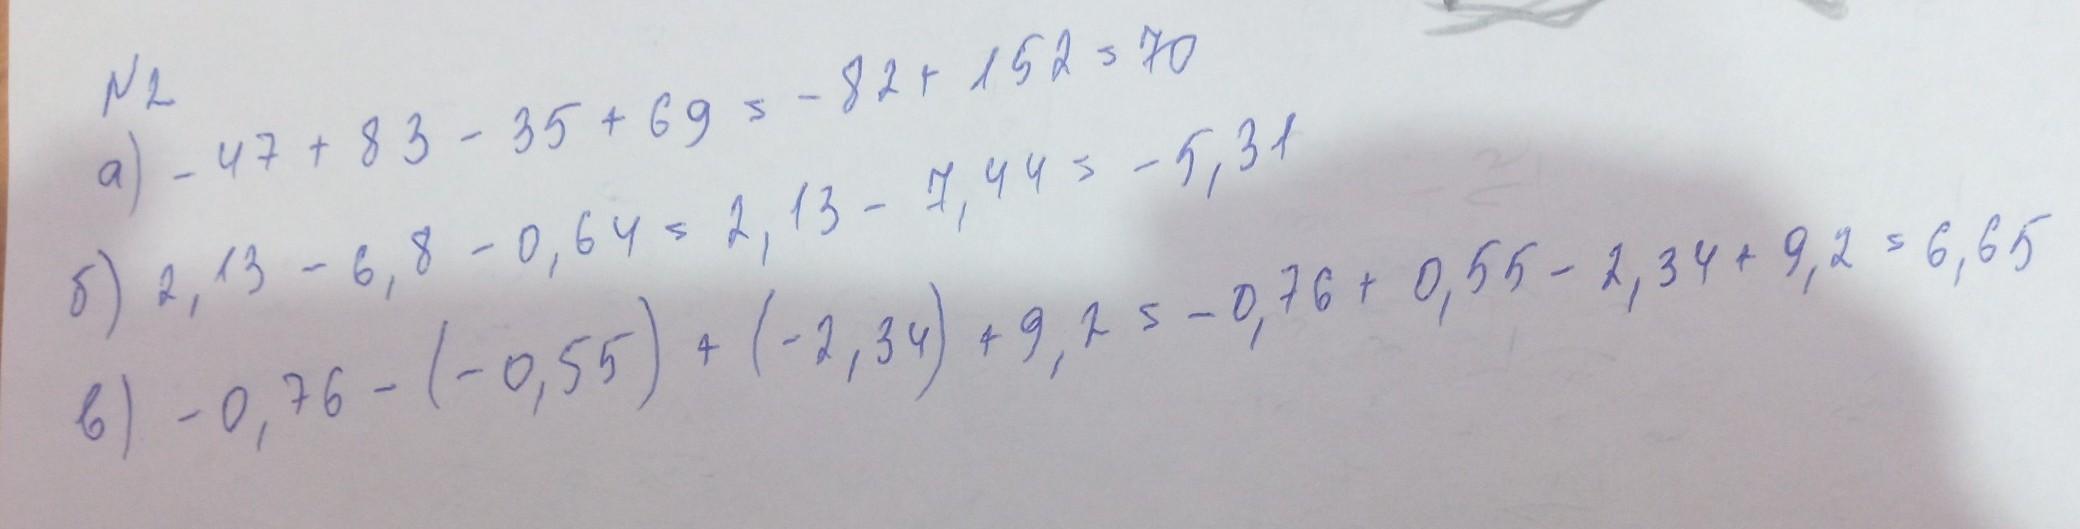 №2
а) -47 + 83 - 35 + 69 = -82 + 152 = 70
б) 2,13 - 6,8 - 0,64 = 2,13 - 7,44 = -5,31
в) -0,76 - (-0,55) + (-2,34) + 9,2 = -0,76 + 0,55 - 2,34 + 9,2 = 6,65